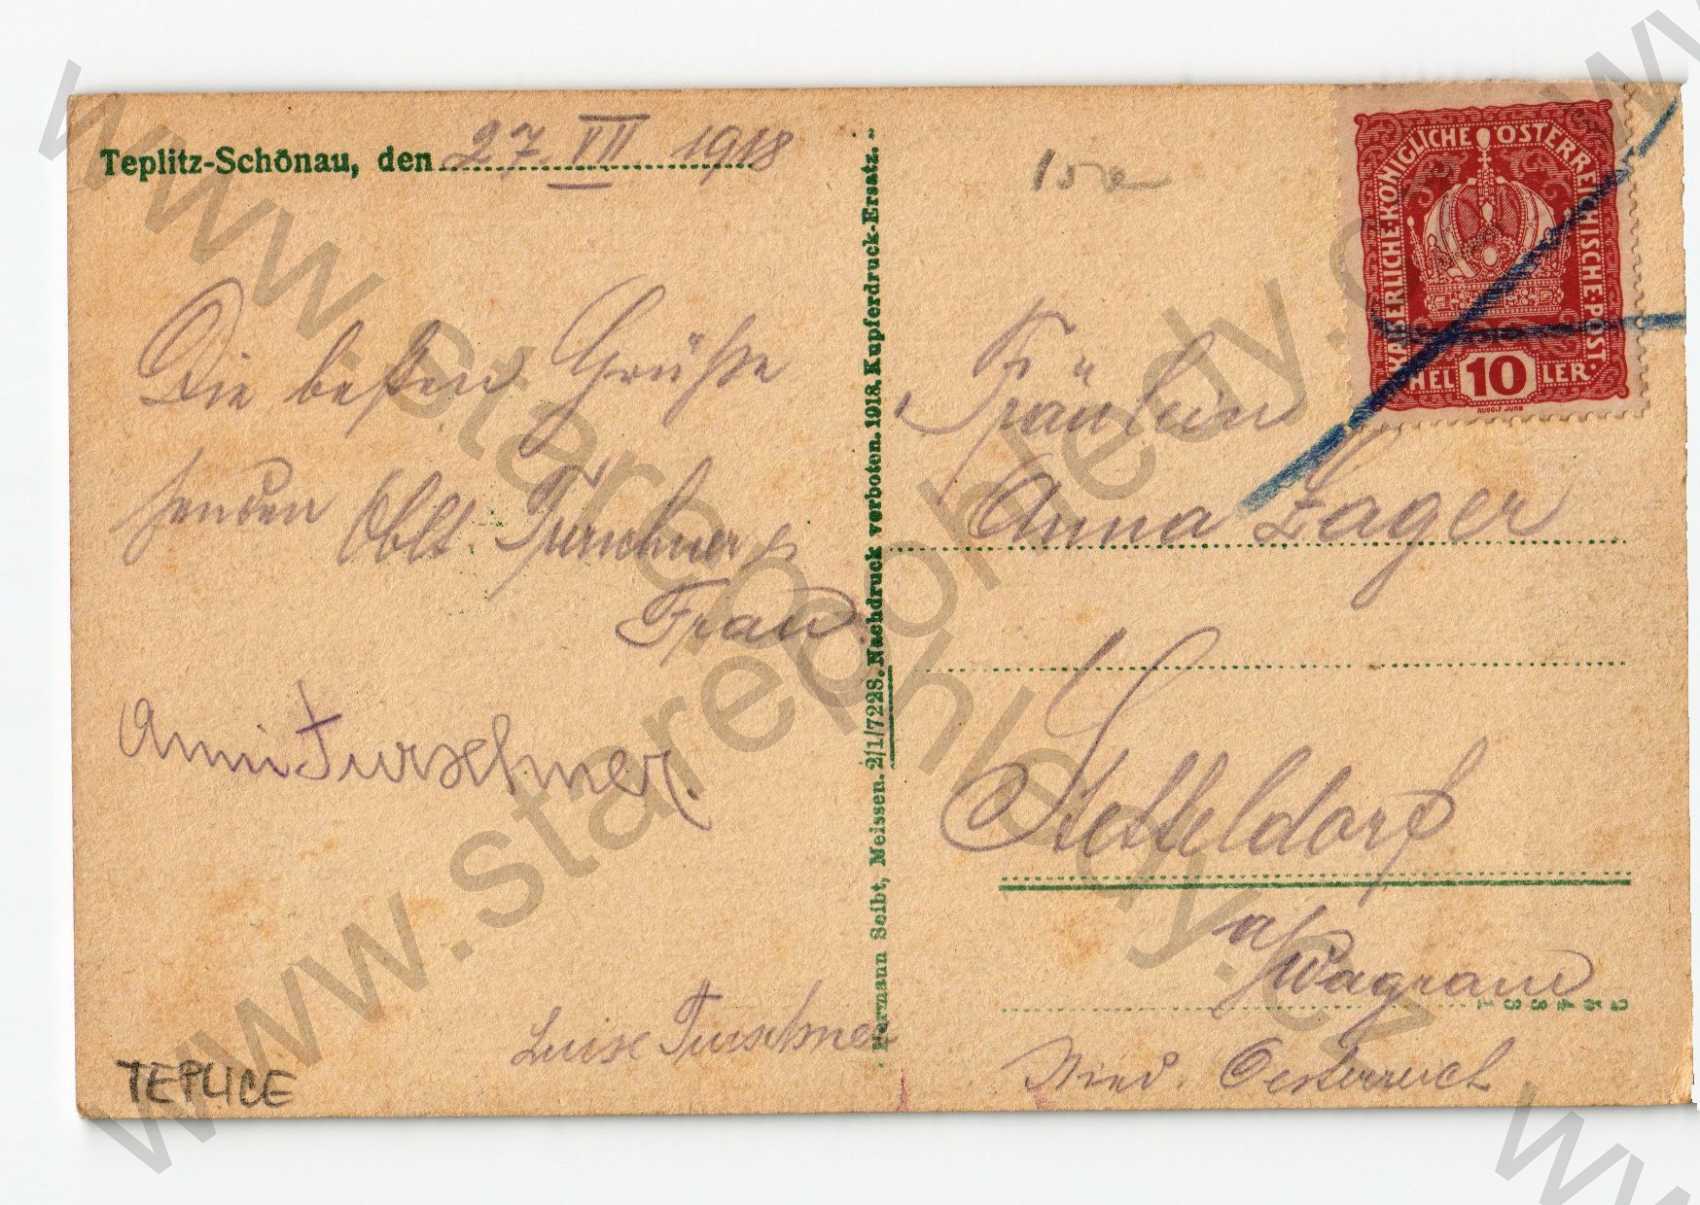 Teplitz-Schönau, den 27. VII 1918
Die besten Grüße
senden Oblt. Turschner &
Frau
Anni Turschner.
Luise Turschner
TEPLICE
Hermann Seibt, Meissen. 2/1/7228. Nachdruck verboten. 1918. Kupferdruck-Ersatz.
KAISERLICHE·KÖNIGLICHE ÖSTERREICHISCHE·POST·
10
HELLER·
RUDOLF JUNG
Fräulein
Anna Zager
Stetteldorf
a/Wagram
Nied. Oesterreich
1 3 3 4 5 2
www.starepohledy.cz
www.starepohledy.cz